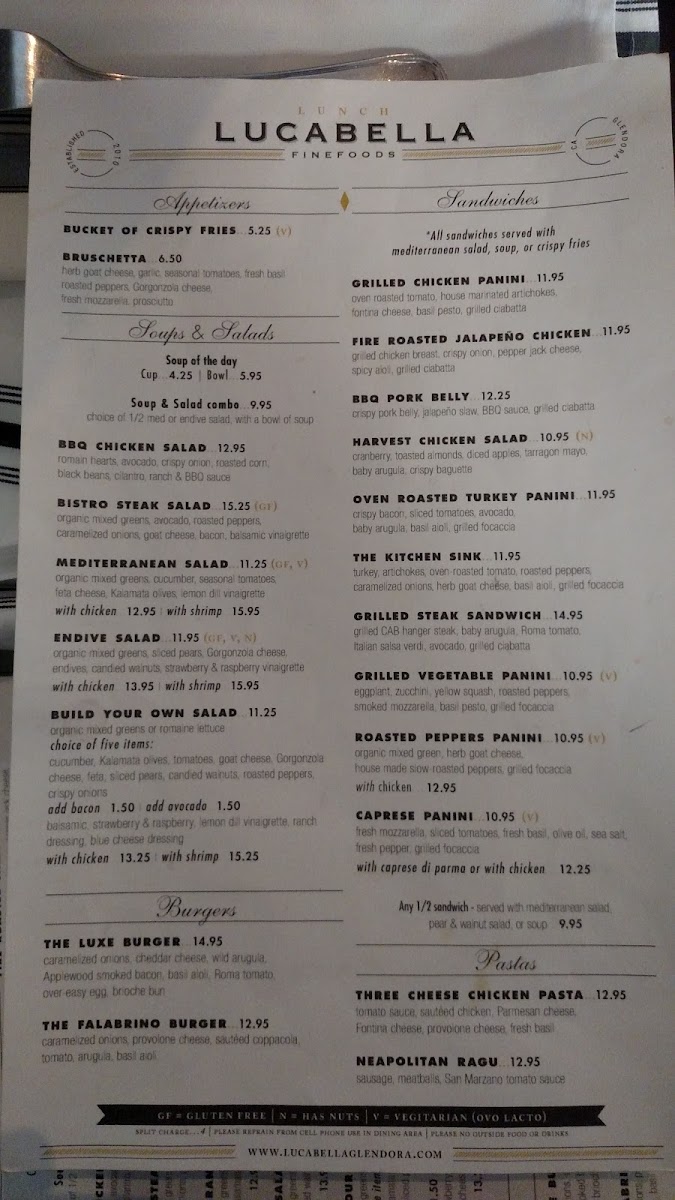 LUNCH
LUCABELLA
FINEFOODS
ESTABLISHED 2010
CA GLENDORA
Appetizers
BUCKET OF CRISPY FRIES...5.25 (V)
BRUSCHETTA...6.50
herb goat cheese, garlic, seasonal tomatoes, fresh basil
roasted peppers, Gorgonzola cheese,
fresh mozzarella, prosciutto
Soups & Salads
Soup of the day
Cup...4.25 | Bowl...5.95
Soup & Salad combo...9.95
choice of 1/2 med or endive salad, with a bowl of soup
BBQ CHICKEN SALAD...12.95
romain hearts, avocado, crispy onion, roasted corn,
black beans, cilantro, ranch & BBQ sauce
BISTRO STEAK SALAD...15.25 (GF)
organic mixed greens, avocado, roasted peppers,
caramelized onions, goat cheese, bacon, balsamic vinaigrette
MEDITERRANEAN SALAD...11.25 (GF, V)
organic mixed greens, cucumber, seasonal tomatoes,
feta cheese, Kalamata olives, lemon dill vinaigrette
with chicken...12.95 | with shrimp...15.95
ENDIVE SALAD...11.95 (GF, V, N)
organic mixed greens, sliced pears, Gorgonzola cheese,
endives, candied walnuts, strawberry & raspberry vinaigrette
with chicken...13.95 | with shrimp...15.95
BUILD YOUR OWN SALAD...11.25
organic mixed greens or romaine lettuce
choice of five items:
cucumber, Kalamata olives, tomatoes, goat cheese, Gorgonzola
cheese, feta, sliced pears, candied walnuts, roasted peppers,
crispy onions
add bacon...1.50 | add avocado...1.50
balsamic, strawberry & raspberry, lemon dill vinaigrette, ranch
dressing, blue cheese dressing
with chicken...13.25 | with shrimp...15.25
Burgers
THE LUXE BURGER...14.95
caramelized onions, cheddar cheese, wild arugula,
Applewood smoked bacon, basil aioli, Roma tomato,
over-easy egg, brioche bun
THE FALABRINO BURGER...12.95
caramelized onions, provolone cheese, sautéed coppacola,
tomato, arugula, basil aioli
Sandwiches
*All sandwiches served with
mediterranean salad, soup, or crispy fries
GRILLED CHICKEN PANINI...11.95
oven roasted tomato, house marinated artichokes,
fontina cheese, basil pesto, grilled ciabatta
FIRE ROASTED JALAPEÑO CHICKEN...11.95
grilled chicken breast, crispy onion, pepper jack cheese,
spicy aioli, grilled ciabatta
BBQ PORK BELLY...12.25
crispy pork belly, jalapeño slaw, BBQ sauce, grilled ciabatta
HARVEST CHICKEN SALAD...10.95 (N)
cranberry, toasted almonds, diced apples, tarragon mayo,
baby arugula, crispy baguette
OVEN ROASTED TURKEY PANINI...11.95
crispy bacon, sliced tomatoes, avocado,
baby arugula, basil aioli, grilled focaccia
THE KITCHEN SINK...11.95
turkey, artichokes, oven-roasted tomato, roasted peppers,
caramelized onions, herb goat cheese, basil aioli, grilled focaccia
GRILLED STEAK SANDWICH...14.95
grilled CAB hanger steak, baby arugula, Roma tomato,
Italian salsa verdi, avocado, grilled ciabatta
GRILLED VEGETABLE PANINI...10.95 (V)
eggplant, zucchini, yellow squash, roasted peppers,
smoked mozzarella, basil pesto, grilled focaccia
ROASTED PEPPERS PANINI...10.95 (V)
organic mixed green, herb goat cheese,
house made slow-roasted peppers, grilled focaccia
with chicken...12.95
CAPRESE PANINI...10.95 (V)
fresh mozzarella, sliced tomatoes, fresh basil, olive oil, sea salt,
fresh pepper, grilled focaccia
with caprese di parma or with chicken...12.25
Any 1/2 sandwich - served with mediterranean salad,
pear & walnut salad, or soup...9.95
Pastas
THREE CHEESE CHICKEN PASTA...12.95
tomato sauce, sautéed chicken, Parmesan cheese,
Fontina cheese, provolone cheese, fresh basil
NEAPOLITAN RAGU...12.95
sausage, meatballs, San Marzano tomato sauce
GF = GLUTEN FREE | N = HAS NUTS | V = VEGITARIAN (OVO LACTO)
SPLIT CHARGE...4 | PLEASE REFRAIN FROM CELL PHONE USE IN DINING AREA | PLEASE NO OUTSIDE FOOD OR DRINKS
WWW.LUCABELLAGLENDORA.COM